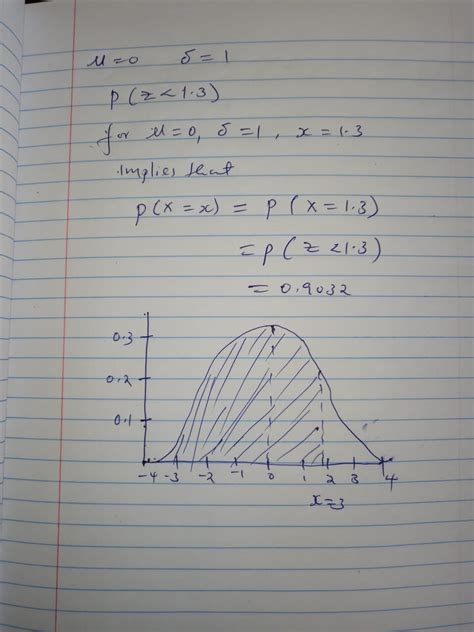 μ=0 δ=1
p(z<1.3)
for μ=0, δ=1, x=1.3
implies that
p(X=x) = p(X=1.3)
=p(z<1.3)
=0.9032
0.3
0.2
0.1
-4 -3 -2 -1 0 1 2 3 4
x=3